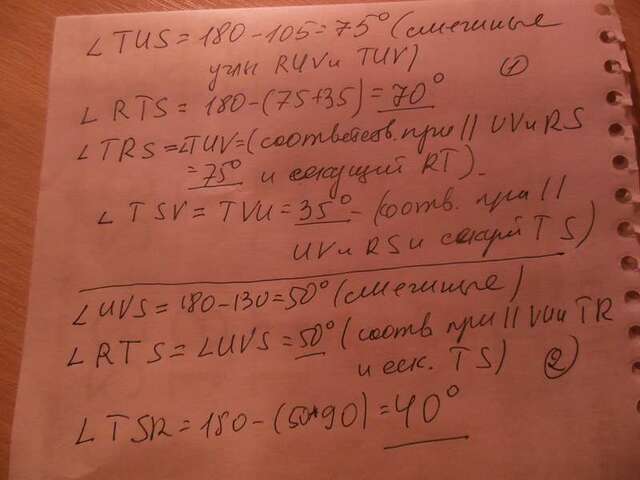 ∠ TUS = 180 - 105 = 75° (смежные
углы RUV и TUV) ①
∠ RTS = 180 - (75+35) = 70°
∠ TRS = ∠TUV = (соответств. при || UV и RS
= 75° и секущий RT).
∠ TSV = TVU = 35° - (соотв. при ||
UV и RS и секущ TS)
∠ UVS = 180 - 130 = 50° (смежные)
∠ RTS = ∠UVS = 50° (соотв при || VU и TR
и сек. TS) ②
∠ TSR = 180 - (50+90) = 40°